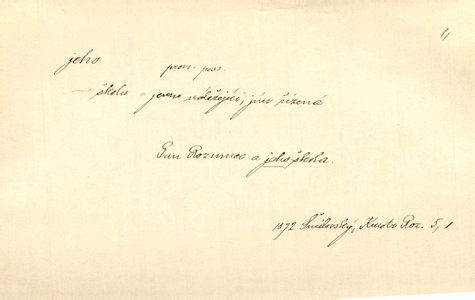 jeho
pron. poss.
~ škola = jemu náležející, jím řízená
Pan Rozumec a jeho škola.
1872 Šmilovský, Kmotr Roz. 5, 1